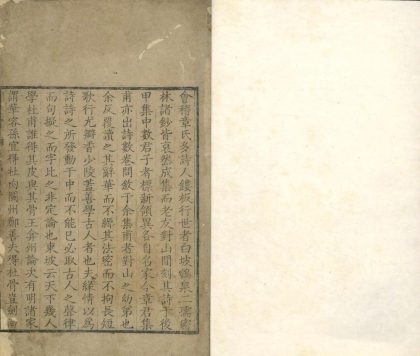 會稽章氏多詩人鏤板行世者白坡鶴泉二孺客
林諸鈔皆裒然成集而老友對山閒刻其詩于後
甲集中數君子者標新領異各自名家今章君集
甫亦出詩數卷問敘于余集甫者對山之幼弟也
余反覆讀之其辭華而不縟其法密而不拘長短
歌行尤瓣香少陵蓋善學古人者也夫緣情以爲
詩詩之所發動于中而不能已必取古人之聲律
而句擬之而字比之非定論也東坡云天下幾人
學杜甫誰得其皮與其骨王弇州論次有明諸家
謂華容孫宜得杜肉閬州鄭善夫得杜骨豈劍南